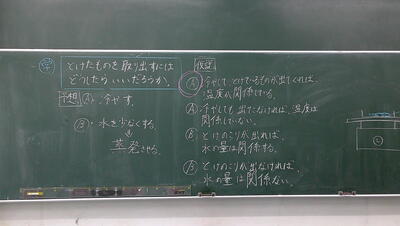 学
とけたものを取り出すには
どうしたらいいだろうか。
予想 Ⓐ・冷やす。
Ⓑ・水を少なくする。
蒸発させる。
仮説
Ⓐ 冷やしてとけているものが出てくれば、
温度が関係している。
Ⓐ 冷やしても出てこなければ、温度は
関係していない。
Ⓑ とけのこりが出れば、
水の量は関係する。
Ⓑ とけのこりが出なければ、
水の量は関係ない。